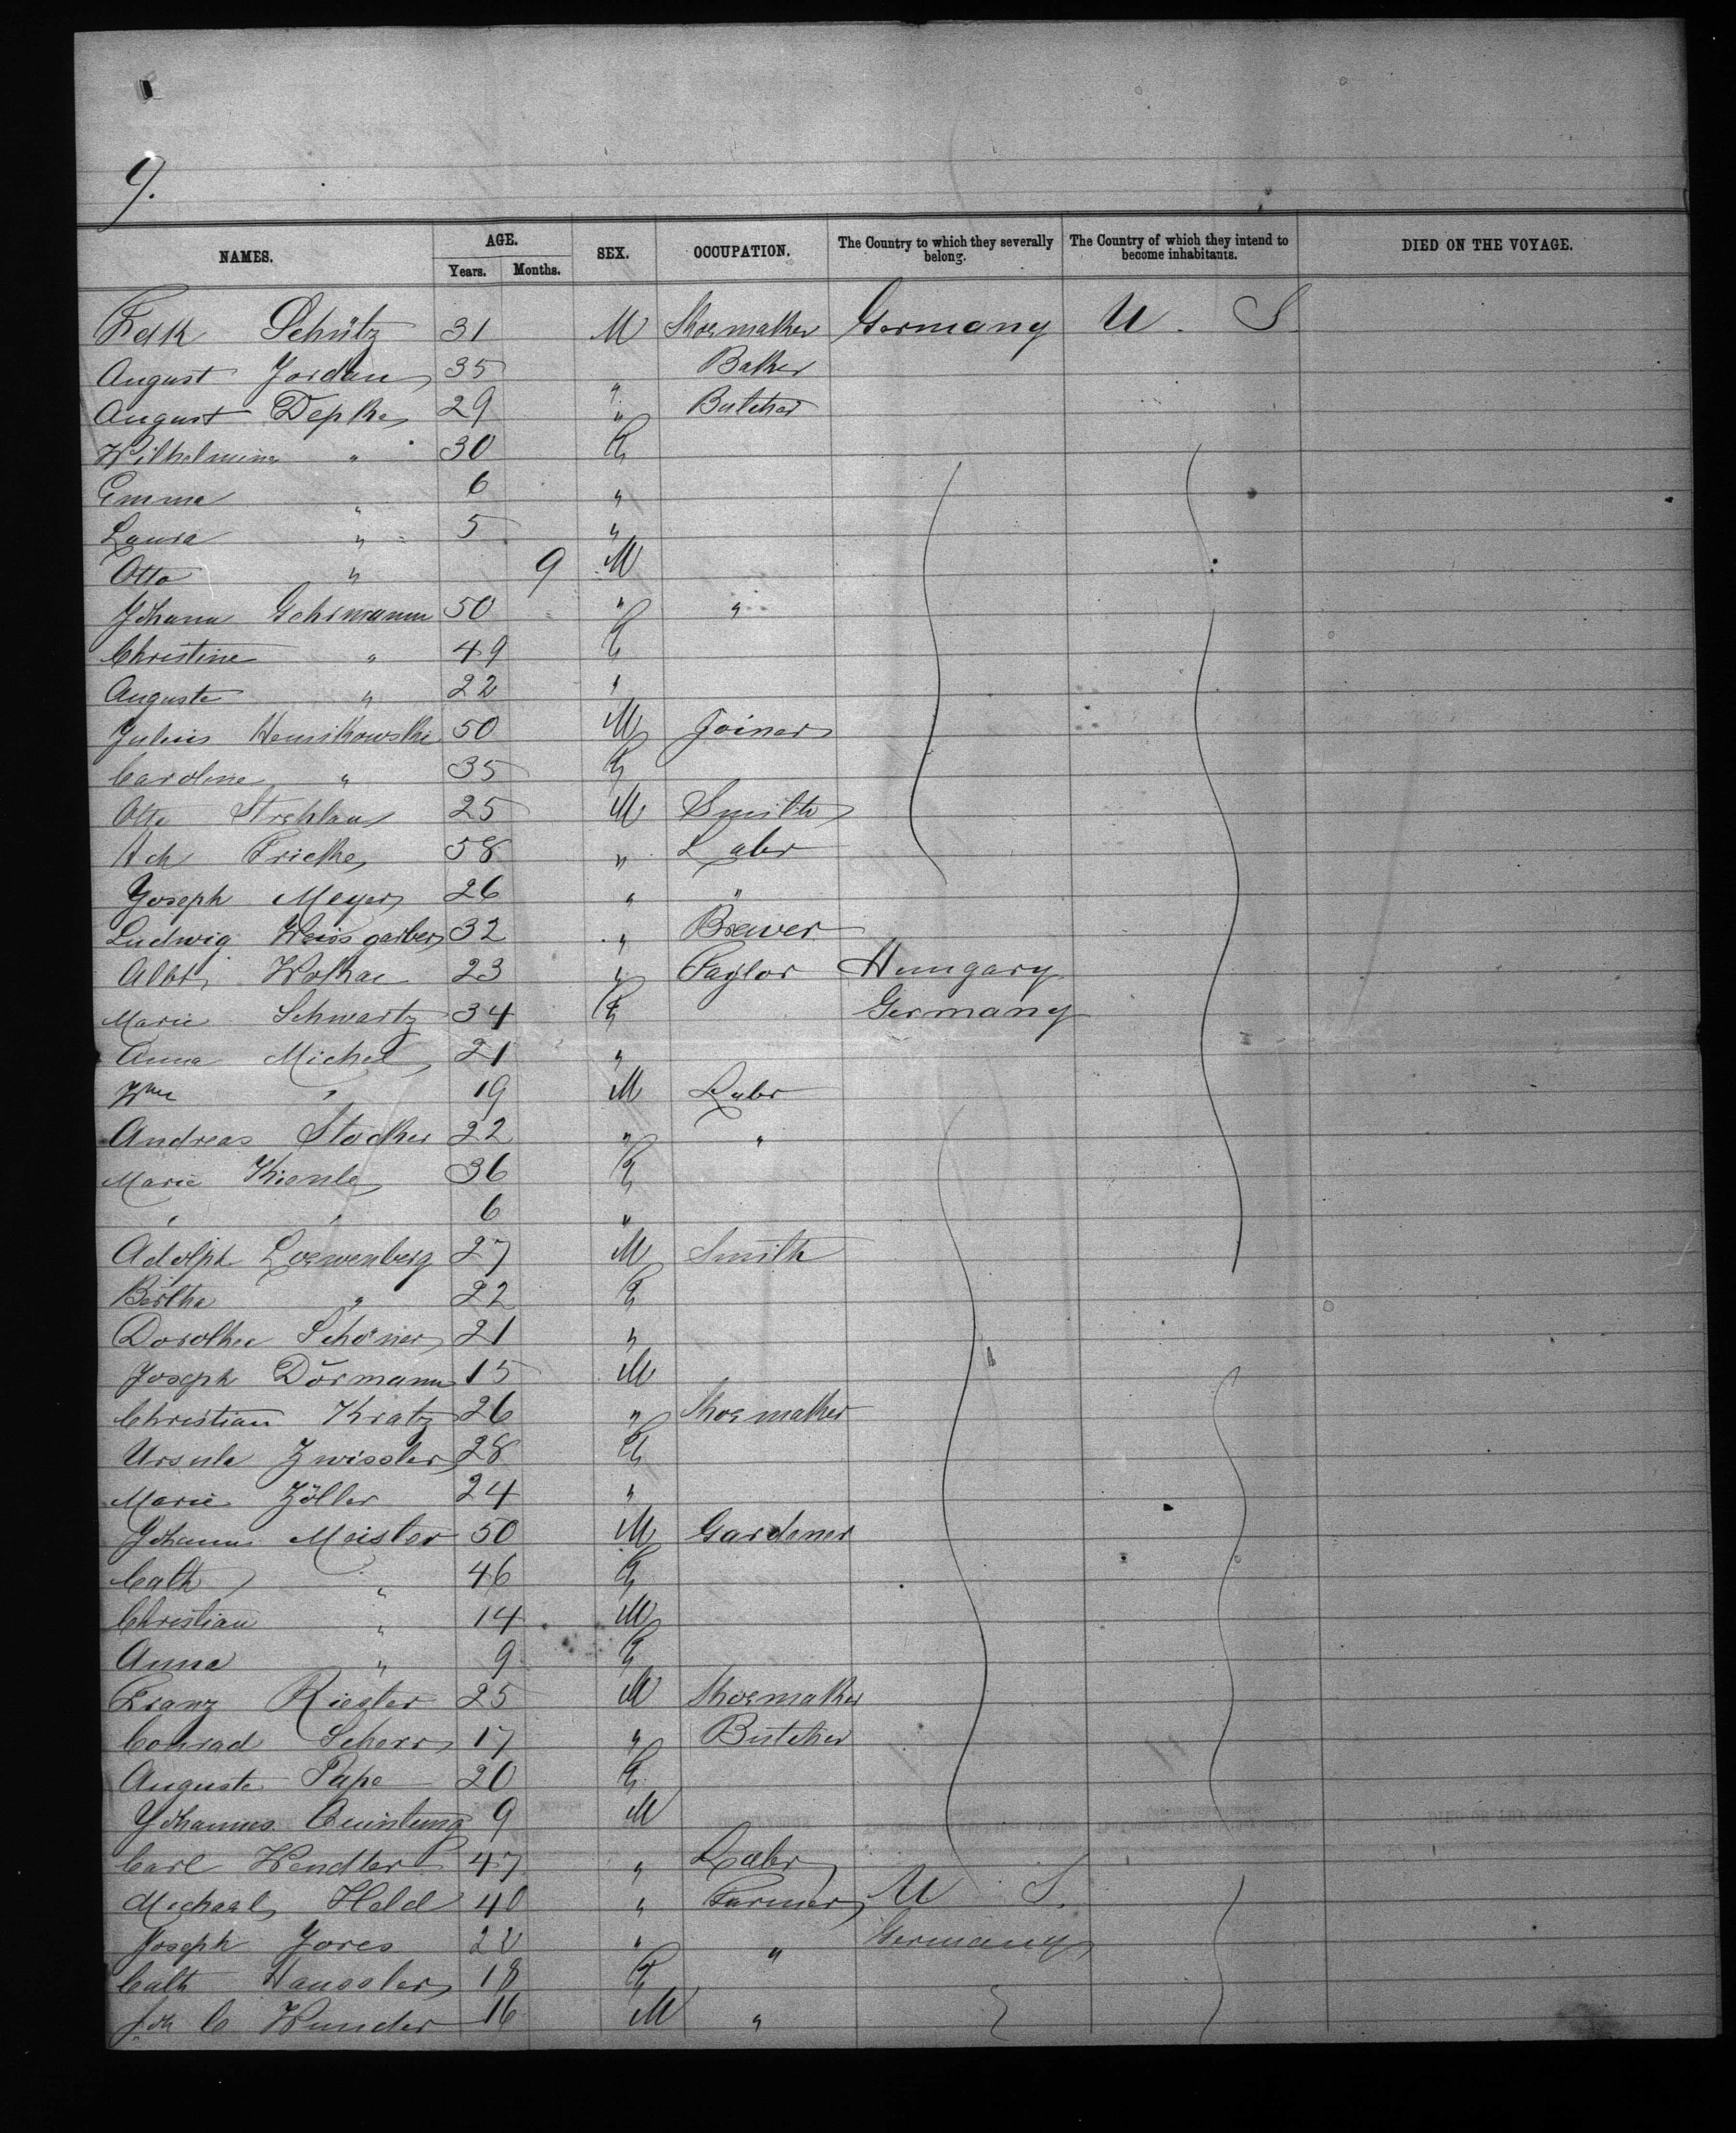 9.
NAMES. AGE. Years. Months. SEX. OCCUPATION. The Country to which they severally belong. The Country of which they intend to become inhabitants. DIED ON THE VOYAGE.
Fdk Schütz 31 M Shoemaker Germany U. S.
August Jordan 35 " Baker
August Depke 29 " Butcher
Wilhelmine " 30 F
Emma " 6 "
Laura " 5 "
Otto " 9 M
Johann Gehrmann 50 " "
Christine " 49 F
Auguste " 22 "
Julius 50 M Joiner
Caroline " 35 F
Otto Strehlau 25 M Smith
Fricke 58 " Labr
Joseph Meyer 26 " "
Ludwig Weissgarber 32 " Brewer
Albt. 23 " Taylor Hungary
Marie Schwartz 34 F Germany
Anna Michel 21 "
Wm " 19 M Labr
Andreas Stocker 22 " "
Marie Kienle 36 F
" " 6 "
Adolph Loewenberg 27 M Smith
Bertha " 22 F
Dorothea Schöner 21 "
Joseph Dörmann 15 M
Christian Kratz 26 " Shoemaker
Ursula Zwissler 28 F
Marie Zöller 24 "
Johann Meister 50 M Gardener
Cath " 46 F
Christian " 14 M
Anna " 9 F
Franz Riegler 25 M Shoemaker
Conrad Scherr 17 " Butcher
Auguste Pape 20 F
Johannes 9 M
Carl Wendler 47 " Labr
Michael Held 40 " Farmer U S.
Joseph Jores 22 " " Germany
Cath Haussler 18 F
Joh C Wunder 16 M "